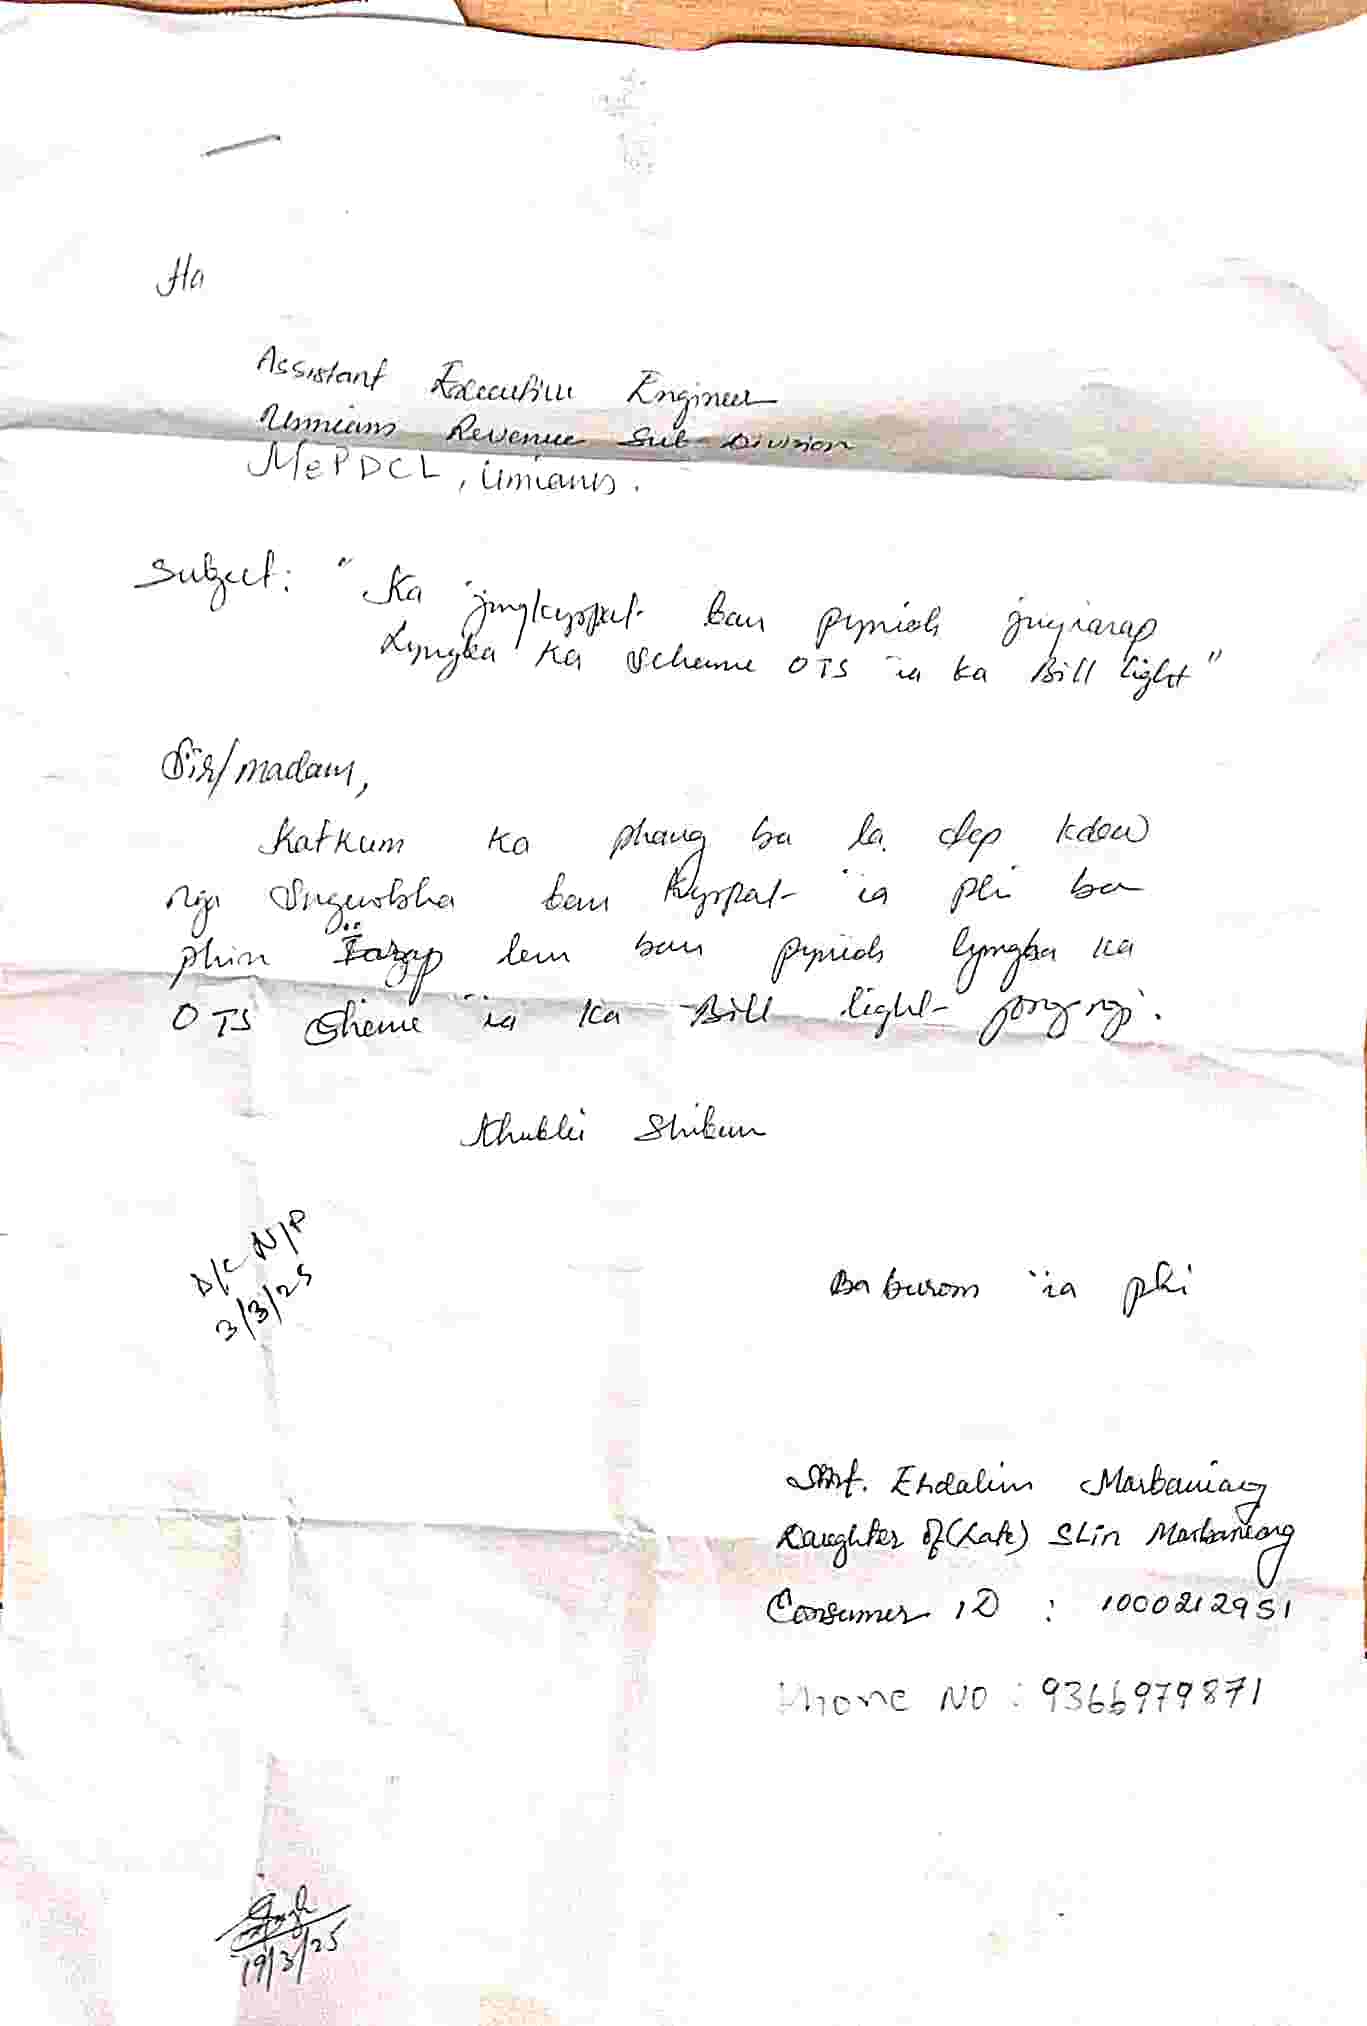 Ha
Assistant Executive Engineer
Umiam Revenue Sub-Division
MePDCL, Umiam.
Subject: "Ka jingkyrpad ban pynioh jingïarap
Lyngba ka Scheme OTS ïa ka Bill light"
Sir/madam,
Katkum ka phang ba la dep kdew
nga Sngewbha ban Kyrpad ïa phi ba
phin Ïarap lem ban pynioh lyngba ka
OTS Sheme ïa ka Bill light jong ngi.
Khublei Shibun
D/C N/P
3/3/25
Ba burom ïa phi
Smt. Erdalin Marbaniang
Daughter of (Late) Slin Marbaniang
Consumer ID : 1000212951
Phone NO : 9366979871
19/3/25